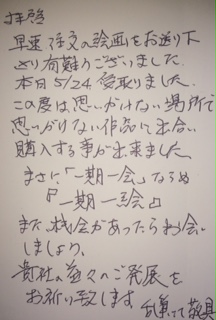 拝啓
早速注文の絵画をお送り下
さり有難うございました.
本日5/24受取りました.
この度は思いがけない場所で
思いがけない作品に出会い
購入する事が出来ました.
まさに「一期一会」ならぬ
『一期一絵』
また機会があったらお会い
しましょう.
貴社の益々のご発展を
お祈り致します 乱筆にて敬具